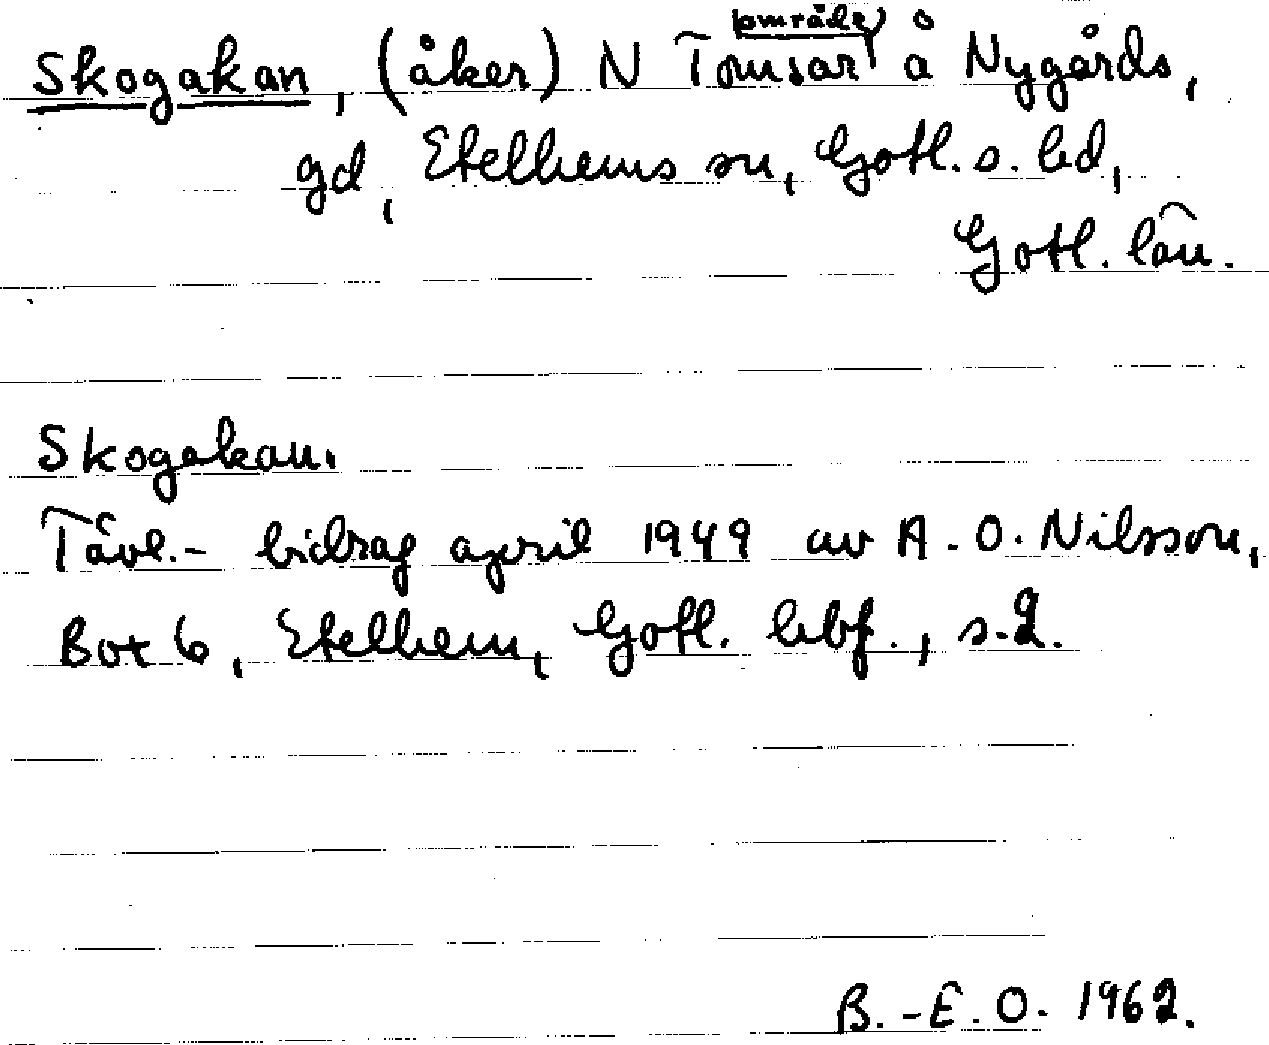 Skogakan, (åker) N Tomsar (område) å Nygårds,
gd, Etelhems sn, Gotl. s. hd,
Gotl. län.
Skogakan.
Tävl.- bidrag april 1949 av A. O. Nilsson,
Box 6, Etelhem, Gotl. hbf., s. 2.
B.-E. O. 1962.